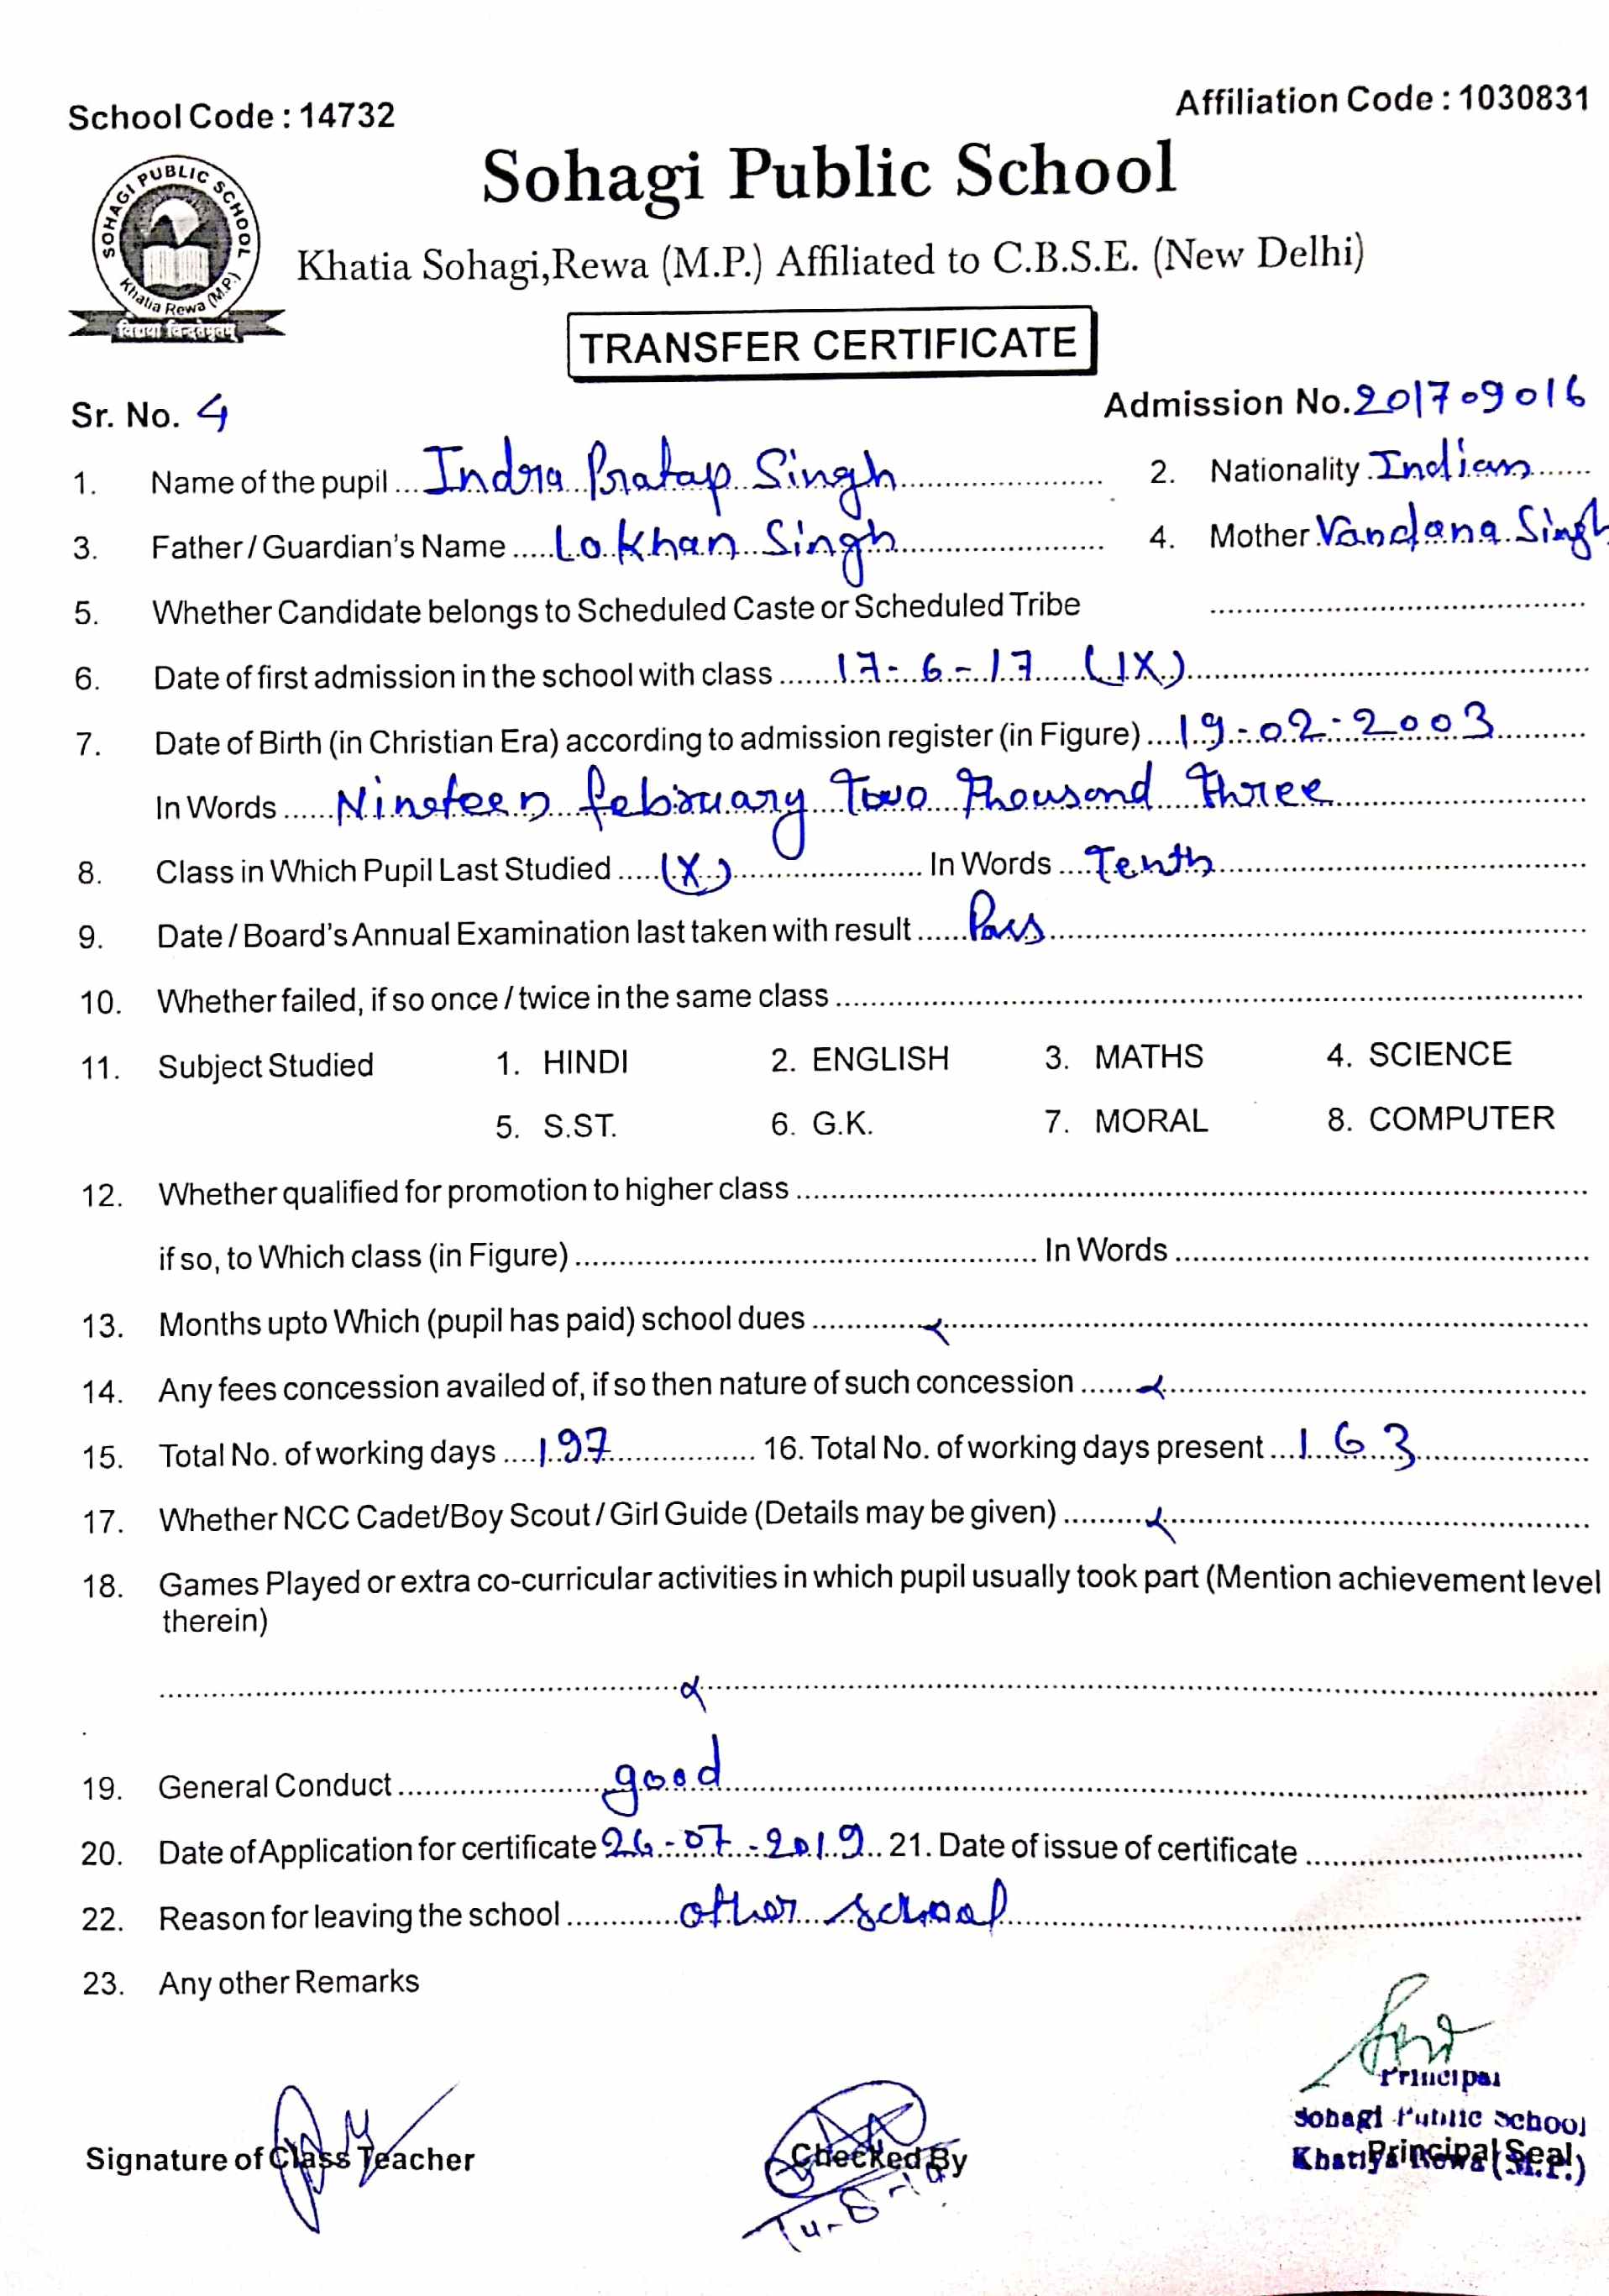 School Code : 14732
Affiliation Code : 1030831
SOHAGI PUBLIC SCHOOL
Khatia Rewa (M.P.)
विद्यया विन्दतेमृतम्
Sohagi Public School
Khatia Sohagi,Rewa (M.P.) Affiliated to C.B.S.E. (New Delhi)
TRANSFER CERTIFICATE
Sr. No. 4
Admission No. 201709016
1. Name of the pupil ... Indra Pratap Singh ... 2. Nationality . Indian ...
3. Father / Guardian's Name ..... Lakhan Singh ... 4. Mother . Vandana Singh
5. Whether Candidate belongs to Scheduled Caste or Scheduled Tribe ...
6. Date of first admission in the school with class ... 17-6-17 (IX) ...
7. Date of Birth (in Christian Era) according to admission register (in Figure) ... 19-02-2003 ...
In Words ... Nineteen february Two Thousand three ...
8. Class in Which Pupil Last Studied ... (X) ... In Words ... Tenth ...
9. Date / Board's Annual Examination last taken with result ... Pass ...
10. Whether failed, if so once / twice in the same class ...
11. Subject Studied 1. HINDI 2. ENGLISH 3. MATHS 4. SCIENCE
5. S.ST. 6. G.K. 7. MORAL 8. COMPUTER
12. Whether qualified for promotion to higher class ...
if so, to Which class (in Figure) ... In Words ...
13. Months upto Which (pupil has paid) school dues ...
14. Any fees concession availed of, if so then nature of such concession ...
15. Total No. of working days .... 197 ... 16. Total No. of working days present ... 163 ...
17. Whether NCC Cadet/Boy Scout / Girl Guide (Details may be given) ...
18. Games Played or extra co-curricular activities in which pupil usually took part (Mention achievement level
therein)
19. General Conduct ... good ...
20. Date of Application for certificate 26-07-2019 .. 21. Date of issue of certificate ...
22. Reason for leaving the school ... other school ...
23. Any other Remarks
Principal
Sohagi Public School
Khatiya Rewa (M.P.)
Signature of Class Teacher
Checked By
Principal Seal